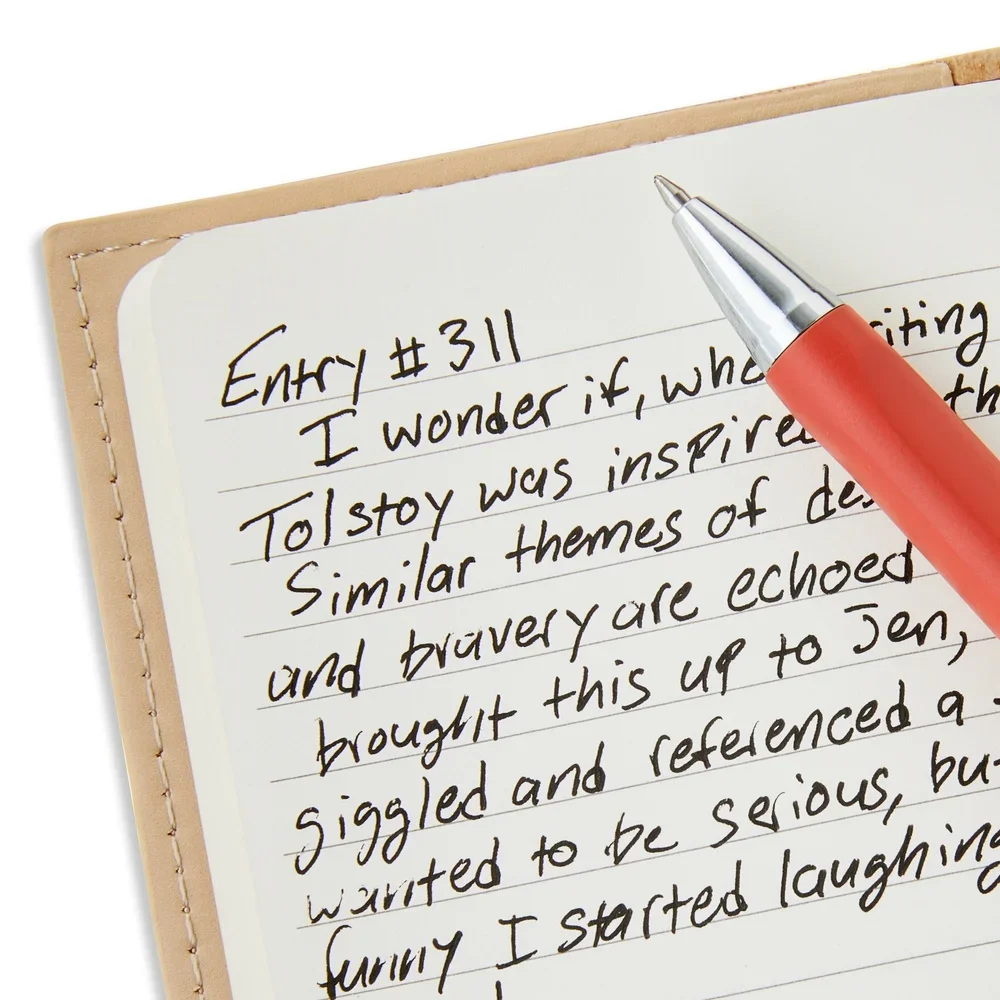 Entry #311
I wonder if, whe iting
Tolstoy was inspire th
Similar themes of des
and bravery are echoed
brought this up to Jen,
giggled and referenced a
wanted to be serious, bu
funny I started laughing